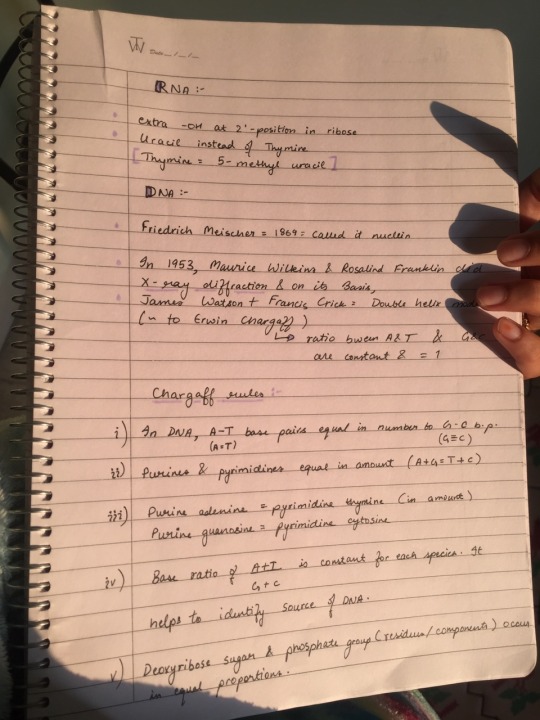 RNA :-
extra -OH at 2'-position in ribose
Uracil instead of Thymine
[Thymine = 5-methyl uracil]
DNA :-
Friedrich Meischer = 1869 = Called it nuclein
In 1953, Maurice Wilkins & Rosalind Franklin did
X-ray diffraction & on its Basis,
James Watson + Francis Crick = Double helix
(~ to Erwin Chargaff)
↳ ratio bween A&T & G&C
are constant & = 1
Chargaff rules :-
i) In DNA, A-T base pairs equal in number to G-C b.p.
(A=T) (G≡C)
ii) Purines & pyrimidines equal in amount (A+G=T+C)
iii) Purine adenine = pyrimidine thymine (in amount)
Purine guanosine = pyrimidine cytosine
iv) Base ratio of A+T is constant for each species. It
G+C
helps to identify source of DNA.
v) Deoxyribose sugar & phosphate group (residues/components) occur
in equal proportions.